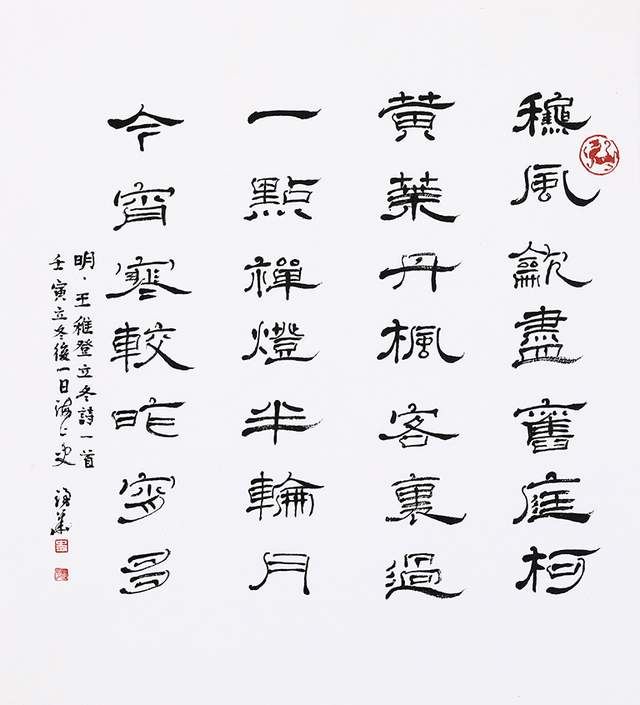 穐風龡盡舊庭柯
黄葉丹楓客裏過
一點禪燈半輪月
今宵寒較昨宵多
明·王稚登立冬詩一首
壬寅立冬後一日海上